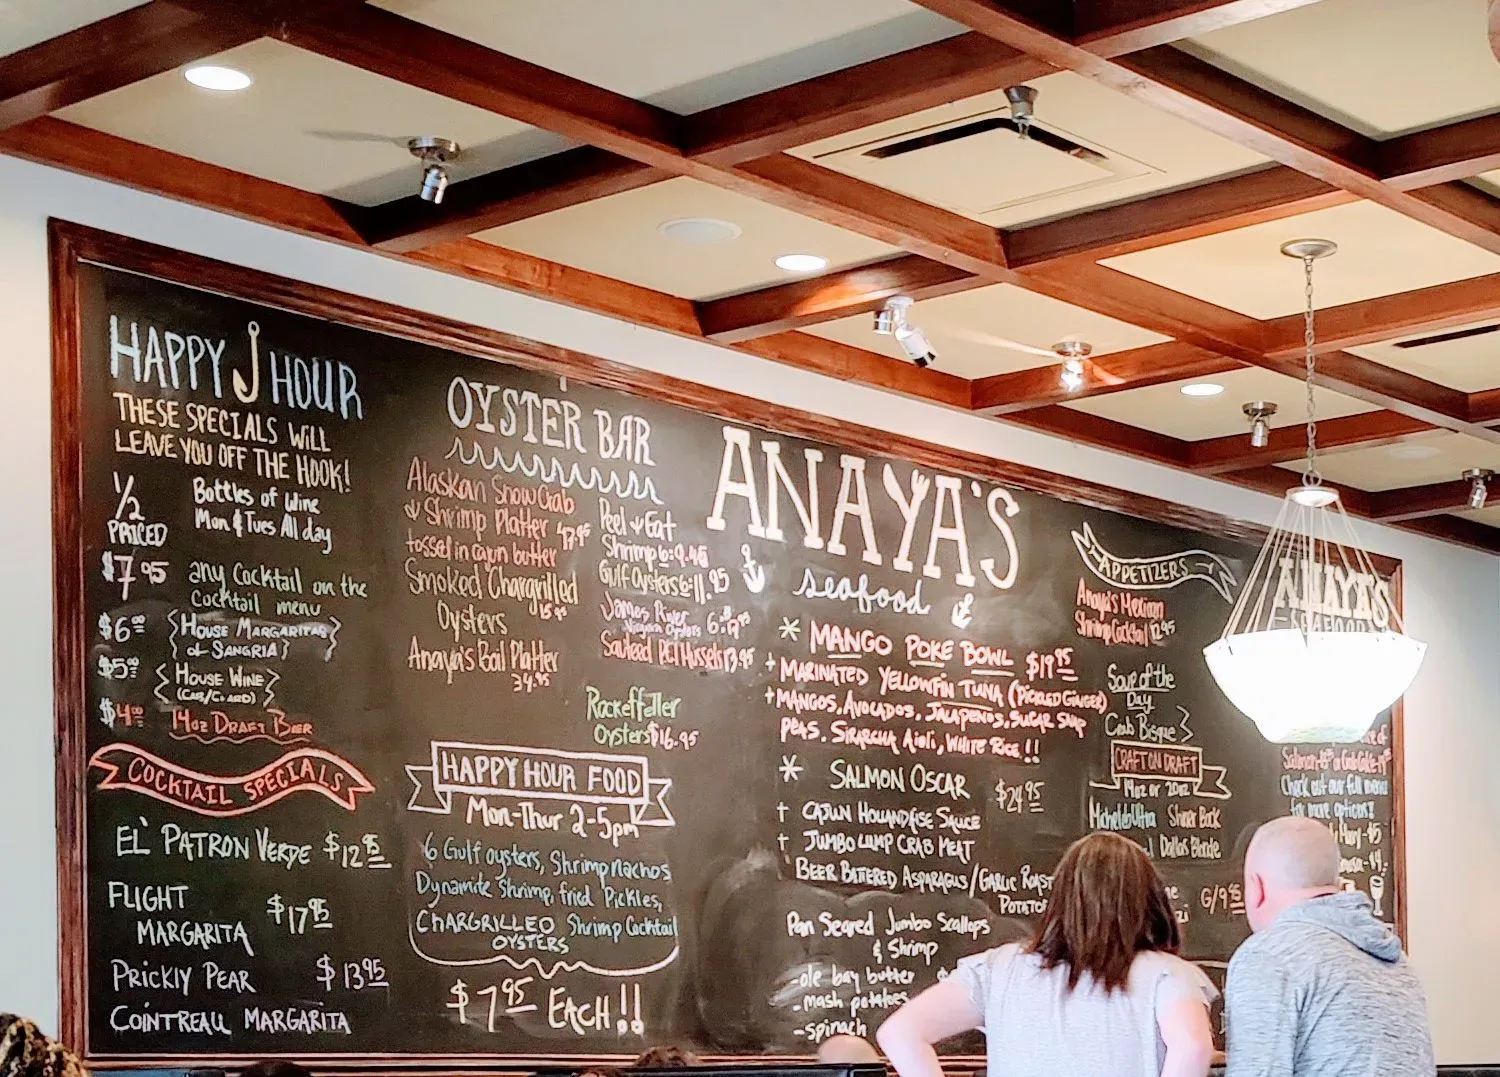 HAPPY HOUR
THESE SPECIALS WILL
LEAVE YOU OFF THE HOOK!
1/2
PRICED
Bottles of Wine
Mon & Tues All day
$7.95
any Cocktail on the
cocktail menu
$6.00
HOUSE MARGARITAS
or SANGRIA
$5.00
HOUSE WINE
(CAB/CHARD)
$4.00 14oz DRAFT BEER
COCKTAIL SPECIALS
EL PATRON VERDE $12.95
FLIGHT
MARGARITA $17.95
PRICKLY PEAR $13.95
COINTREAU MARGARITA
OYSTER BAR
Alaskan SnowCrab
& Shrimp Platter 47.95
tossed in cajun butter
Smoked Chargrilled
Oysters 15.95
Anaya's Boil Platter
34.95
Peel & Eat
Shrimp 6: 9.45
Gulf Oysters 6: 11.95
James River
Oysters 6:
Sauteed PEI Mussels 13.95
Rockeffeller
Oysters $16.95
HAPPY HOUR FOOD
Mon-Thur 2-5pm
6 Gulf oysters, Shrimp nachos
Dynamite Shrimp, fried Pickles,
CHARGRILLED Shrimp Cocktail
OYSTERS
$7.95 EACH!!
ANAYA'S
seafood
* MANGO POKE BOWL $19.95
+ MARINATED YELLOWFIN TUNA (PICKLED GINGER)
+ MANGOS, AVOCADOS, JALAPENOS, SUGAR SNAP
PEAS, SIRARCHA AIOLI, WHITE RICE!!
* SALMON OSCAR $24.95
+ CAJUN HOLLANDAISE SAUCE
+ JUMBO LUMP CRAB MEAT
BEER BATTERED ASPARAGUS/GARLIC ROAST
POTATO
Pan Seared Jumbo Scallops
& Shrimp
-ole bay butter
-mash potatoes
-spinach
APPETIZERS
Anaya's Mexican
Shrimp Cocktail 12.95
Soup of the
Day
Crab Bisque
CRAFT ON DRAFT
14oz or 20oz
Michelob Ultra Shiner Bock
Dallas Blonde
G/9.95
ANAYA'S
SEAFOOD
of
Check out our full menu
for more options!!